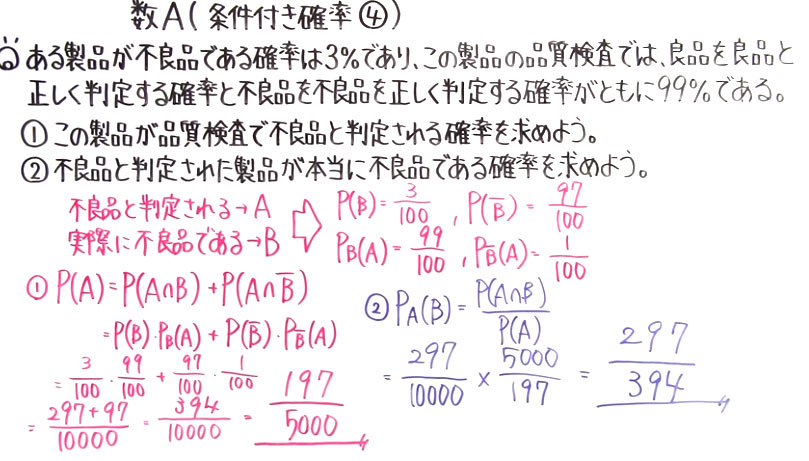 数A(条件付き確率④)
Q ある製品が不良品である確率は3%であり、この製品の品質検査では、良品を良品と
正しく判定する確率と不良品を不良品を正しく判定する確率がともに99%である。
①この製品が品質検査で不良品と判定される確率を求めよう。
②不良品と判定された製品が本当に不良品である確率を求めよう。
不良品と判定される→A
実際に不良品である→B
⇨ P(B)=3/100 , P(B̄)=97/100
P_B(A)=99/100 , P_B̄(A)=1/100
① P(A)=P(A∩B)+P(A∩B̄)
=P(B)·P_B(A)+P(B̄)·P_B̄(A)
=3/100·99/100+97/100·1/100
=297+97/10000=394/10000=197/5000
② P_A(B)=P(A∩B)/P(A)
=297/10000×5000/197=297/394